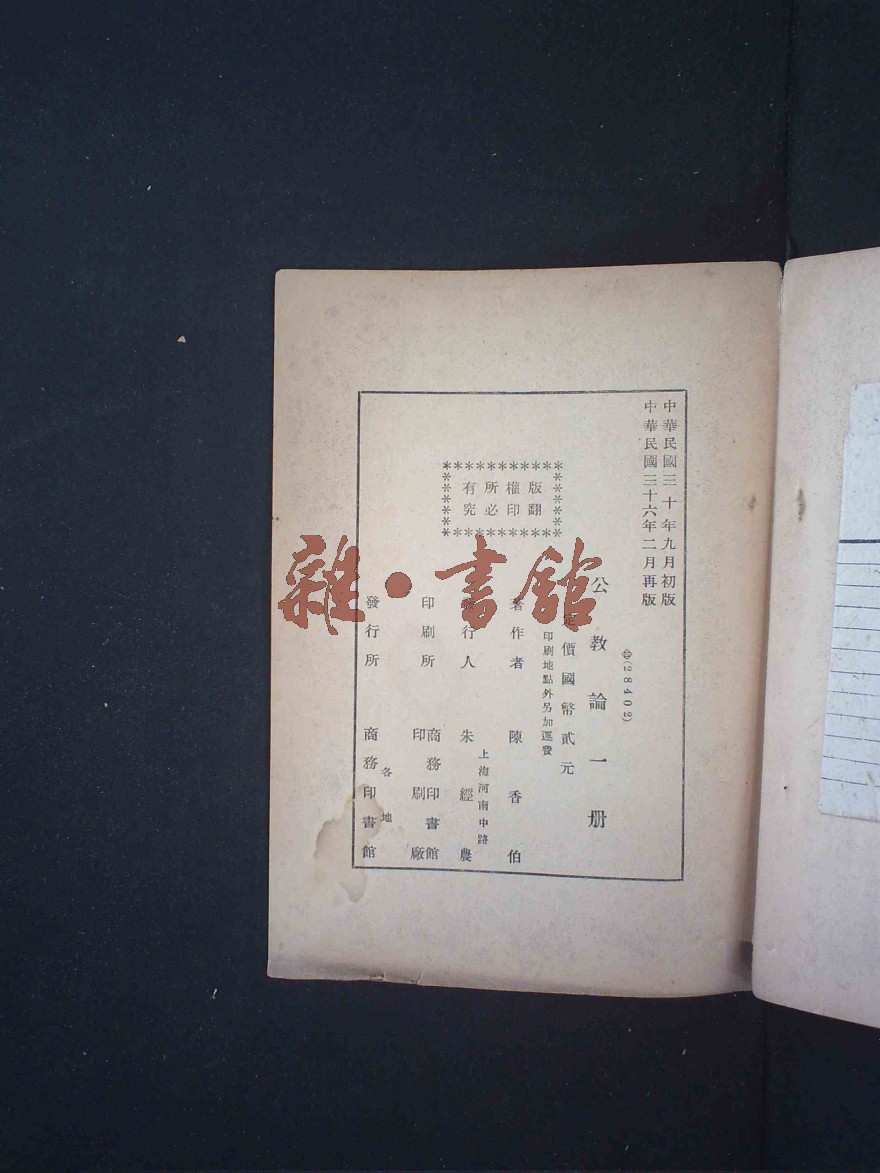 中華民國三十年九月初版
中華民國三十六年二月再版
⊕(28402)
公教論一册
定價國幣貳元
印刷地點外另加運費
版權所有
翻印必究
著作者 陳香伯
上海河南中路
發行人 朱經農
印刷所 商務印書館
印刷廠
各地
發行所 商務印書館
雜·書館